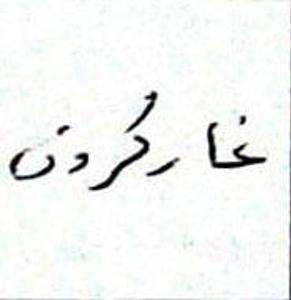 غارکُردن